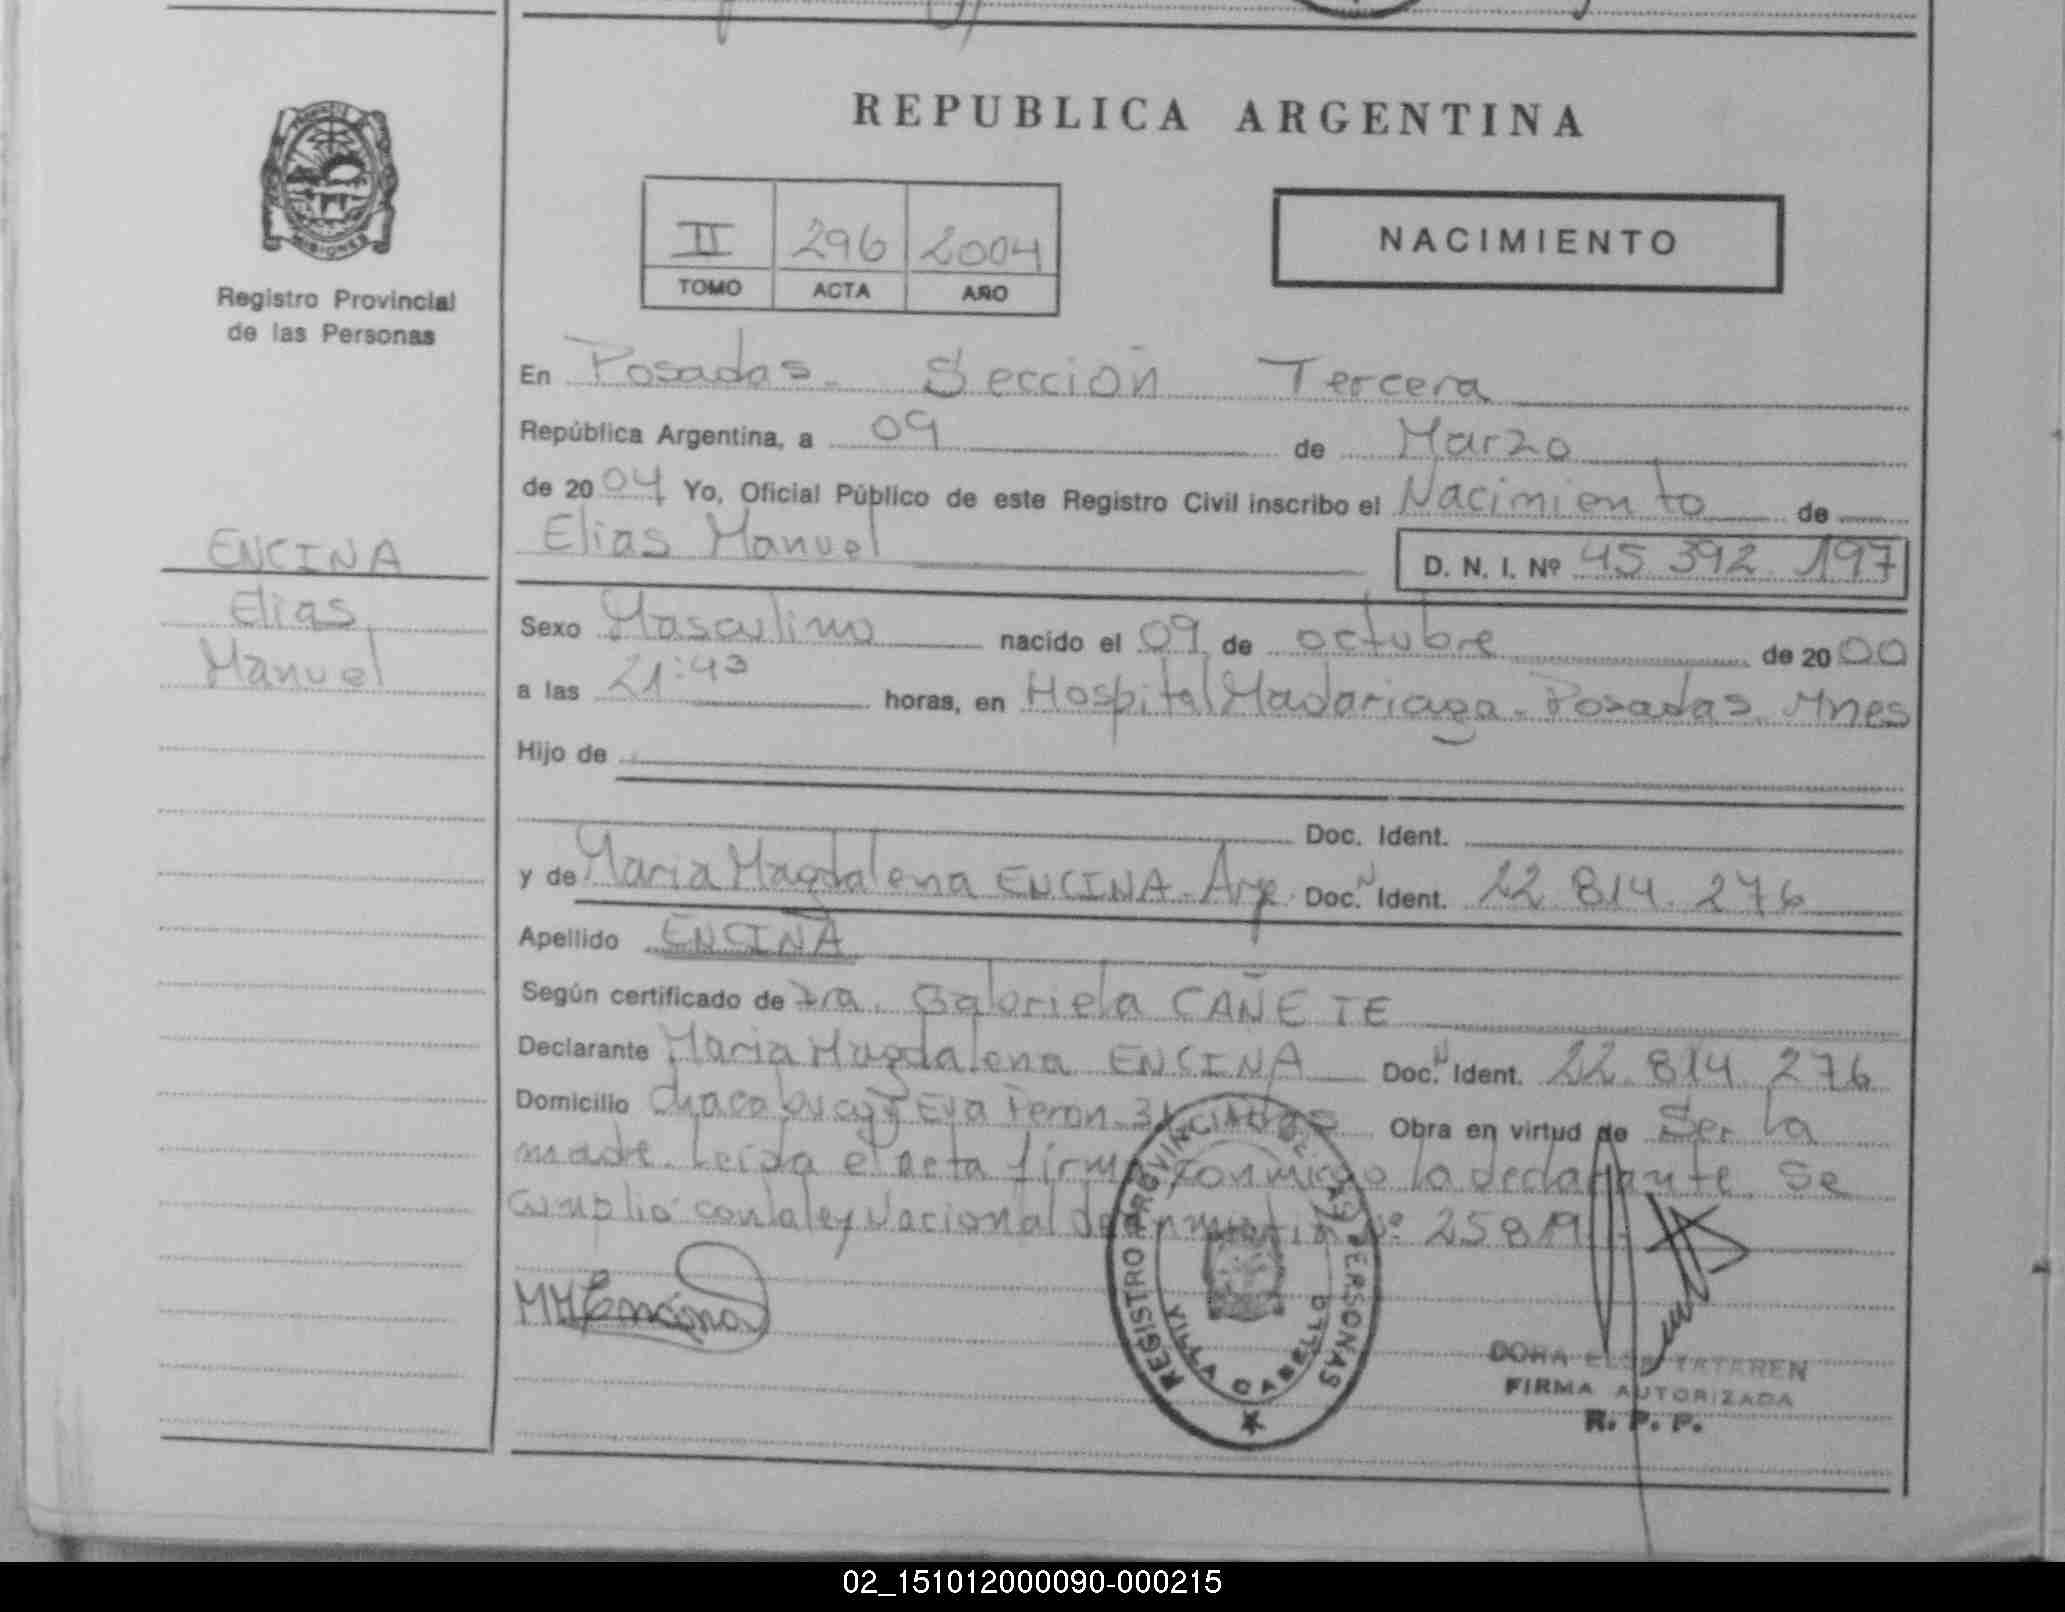 REPUBLICA ARGENTINA
MISIONES
Registro Provincial
de las Personas
II 296 2004
TOMO ACTA AÑO
NACIMIENTO
En Posadas - Sección Tercera
República Argentina, a 09 de Marzo
de 2004 Yo, Oficial Público de este Registro Civil inscribo el Nacimiento de
Elias Manuel
D. N. I. Nº 45 392 197
ENCINA
Elias
Manuel
Sexo Masculino nacido el 09 de octubre de 2000
a las 21:43 horas, en Hospital Madariaga - Posadas Mnes
Hijo de
Doc. Ident.
y de Maria Magdalena ENCINA - Arg. Doc. N Ident. 22 814 276
Apellido ENCINA
Según certificado de Dra. Gabriela CAÑETE
Declarante Maria Magdalena ENCINA Doc. N Ident. 22 814 276
Domicilio Chacabuco y Eva Peron Obra en virtud de Ser la
madre. Leida el acta firma conmigo la declarante Se
cumplio con la ley Nacional de Nº 25819
MMEncina
REGISTRO PROVINCIAL DE LAS PERSONAS
VILLA CABELLO
DORA
FIRMA AUTORIZADA
R. P. P.
02_151012000090-000215